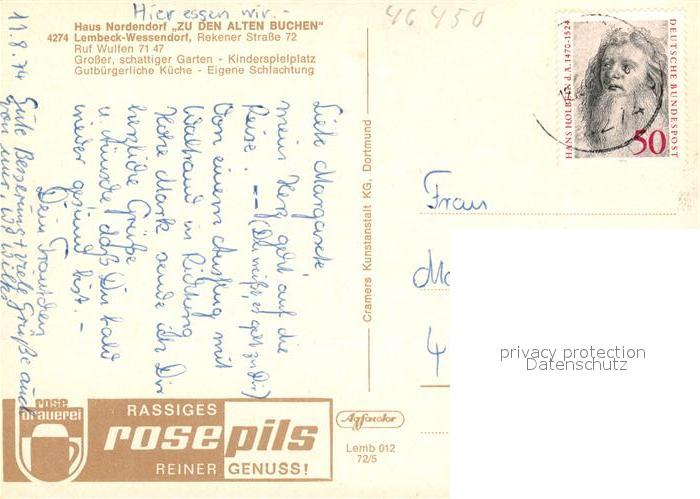 Hier essen wir. -
Haus Nordendorf „ZU DEN ALTEN BUCHEN"
4274 Lembeck-Wessendorf, Rekener Straße 72
Ruf Wulfen 71 47
Großer, schattiger Garten - Kinderspielplatz
Gutbürgerliche Küche - Eigene Schlachtung
46 450
11.8.74
Liebe Margarete,
mein Herz geht auf die
Reise. -- (Du weißt, es geht zu Dir)
Von einem Ausflug mit
Waltraud in Richtung
Hohe Mark sende ich Dir
herzliche Grüße
u. wünsche, daß Du bald
wieder gesund bist. -
Dein Frauchen
Gute Besserung + viele Grüße auch
von
Cramers Kunstanstalt KG, Dortmund
HANS HOLBEIN d. Ä. 1470-1524
DEUTSCHE BUNDESPOST
50
Frau
Ma
4
privacy protection
Datenschutz
rose
brauerei
RASSIGES
rosepils
REINER GENUSS!
Agfacolor
Lemb 012
72/5